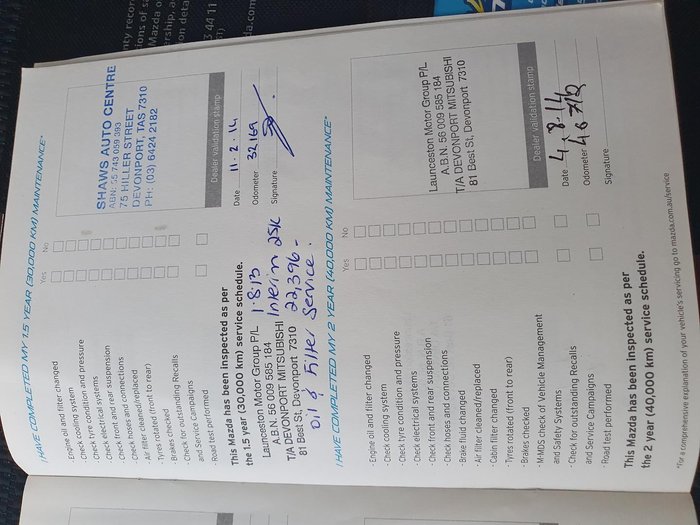 I HAVE COMPLETED MY 1.5 YEAR (30,000 KM) MAINTENANCE*
Yes No
· Engine oil and filter changed
· Check cooling system
· Check tyre condition and pressure
· Check electrical systems
· Check front and rear suspension
· Check hoses and connections
· Air filter cleaned/replaced
· Tyres rotated (front to rear)
· Brakes checked
· Check for outstanding Recalls
and Service Campaigns
· Road test performed
This Mazda has been inspected as per
the 1.5 year (30,000 km) service schedule.
SHAWS AUTO CENTRE
75 HILLER STREET
DEVONPORT, TAS 7310
PH: (03) 6424 2182
Dealer validation stamp
Date 11.2.14
Odometer 32169
Signature
Launceston Motor Group P/L 1.8.13
A.B.N. 56 009 585 184
T/A DEVONPORT MITSUBISHI Interim 25K
81 Best St, Devonport 7310 22,396-
Oil & Filter Service.
I HAVE COMPLETED MY 2 YEAR (40,000 KM) MAINTENANCE*
Yes No
· Engine oil and filter changed
· Check cooling system
· Check tyre condition and pressure
· Check electrical systems
· Check front and rear suspension
· Check hoses and connections
· Brake fluid changed
· Air filter cleaned/replaced
· Cabin filter changed
· Tyres rotated (front to rear)
· Brakes checked
· M-MDS check of Vehicle Management
and Safety Systems
· Check for outstanding Recalls
and Service Campaigns
· Road test performed
This Mazda has been inspected as per
the 2 year (40,000 km) service schedule.
Launceston Motor Group P/L
A.B.N. 56 009 585 184
T/A DEVONPORT MITSUBISHI
81 Best St, Devonport 7310
Dealer validation stamp
Date 4.8.14
Odometer
Signature
*For a comprehensive explanation of your vehicle's servicing go to mazda.com.au/service